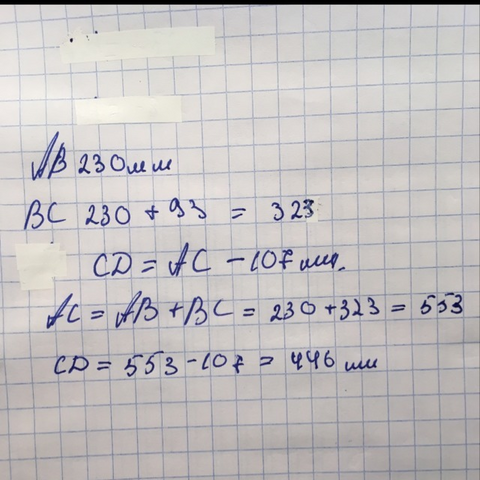 AB 230мм
BC 230 + 93 = 323
CD = AC - 107 мм.
AC = AB + BC = 230 + 323 = 553
CD = 553 - 107 = 446 мм